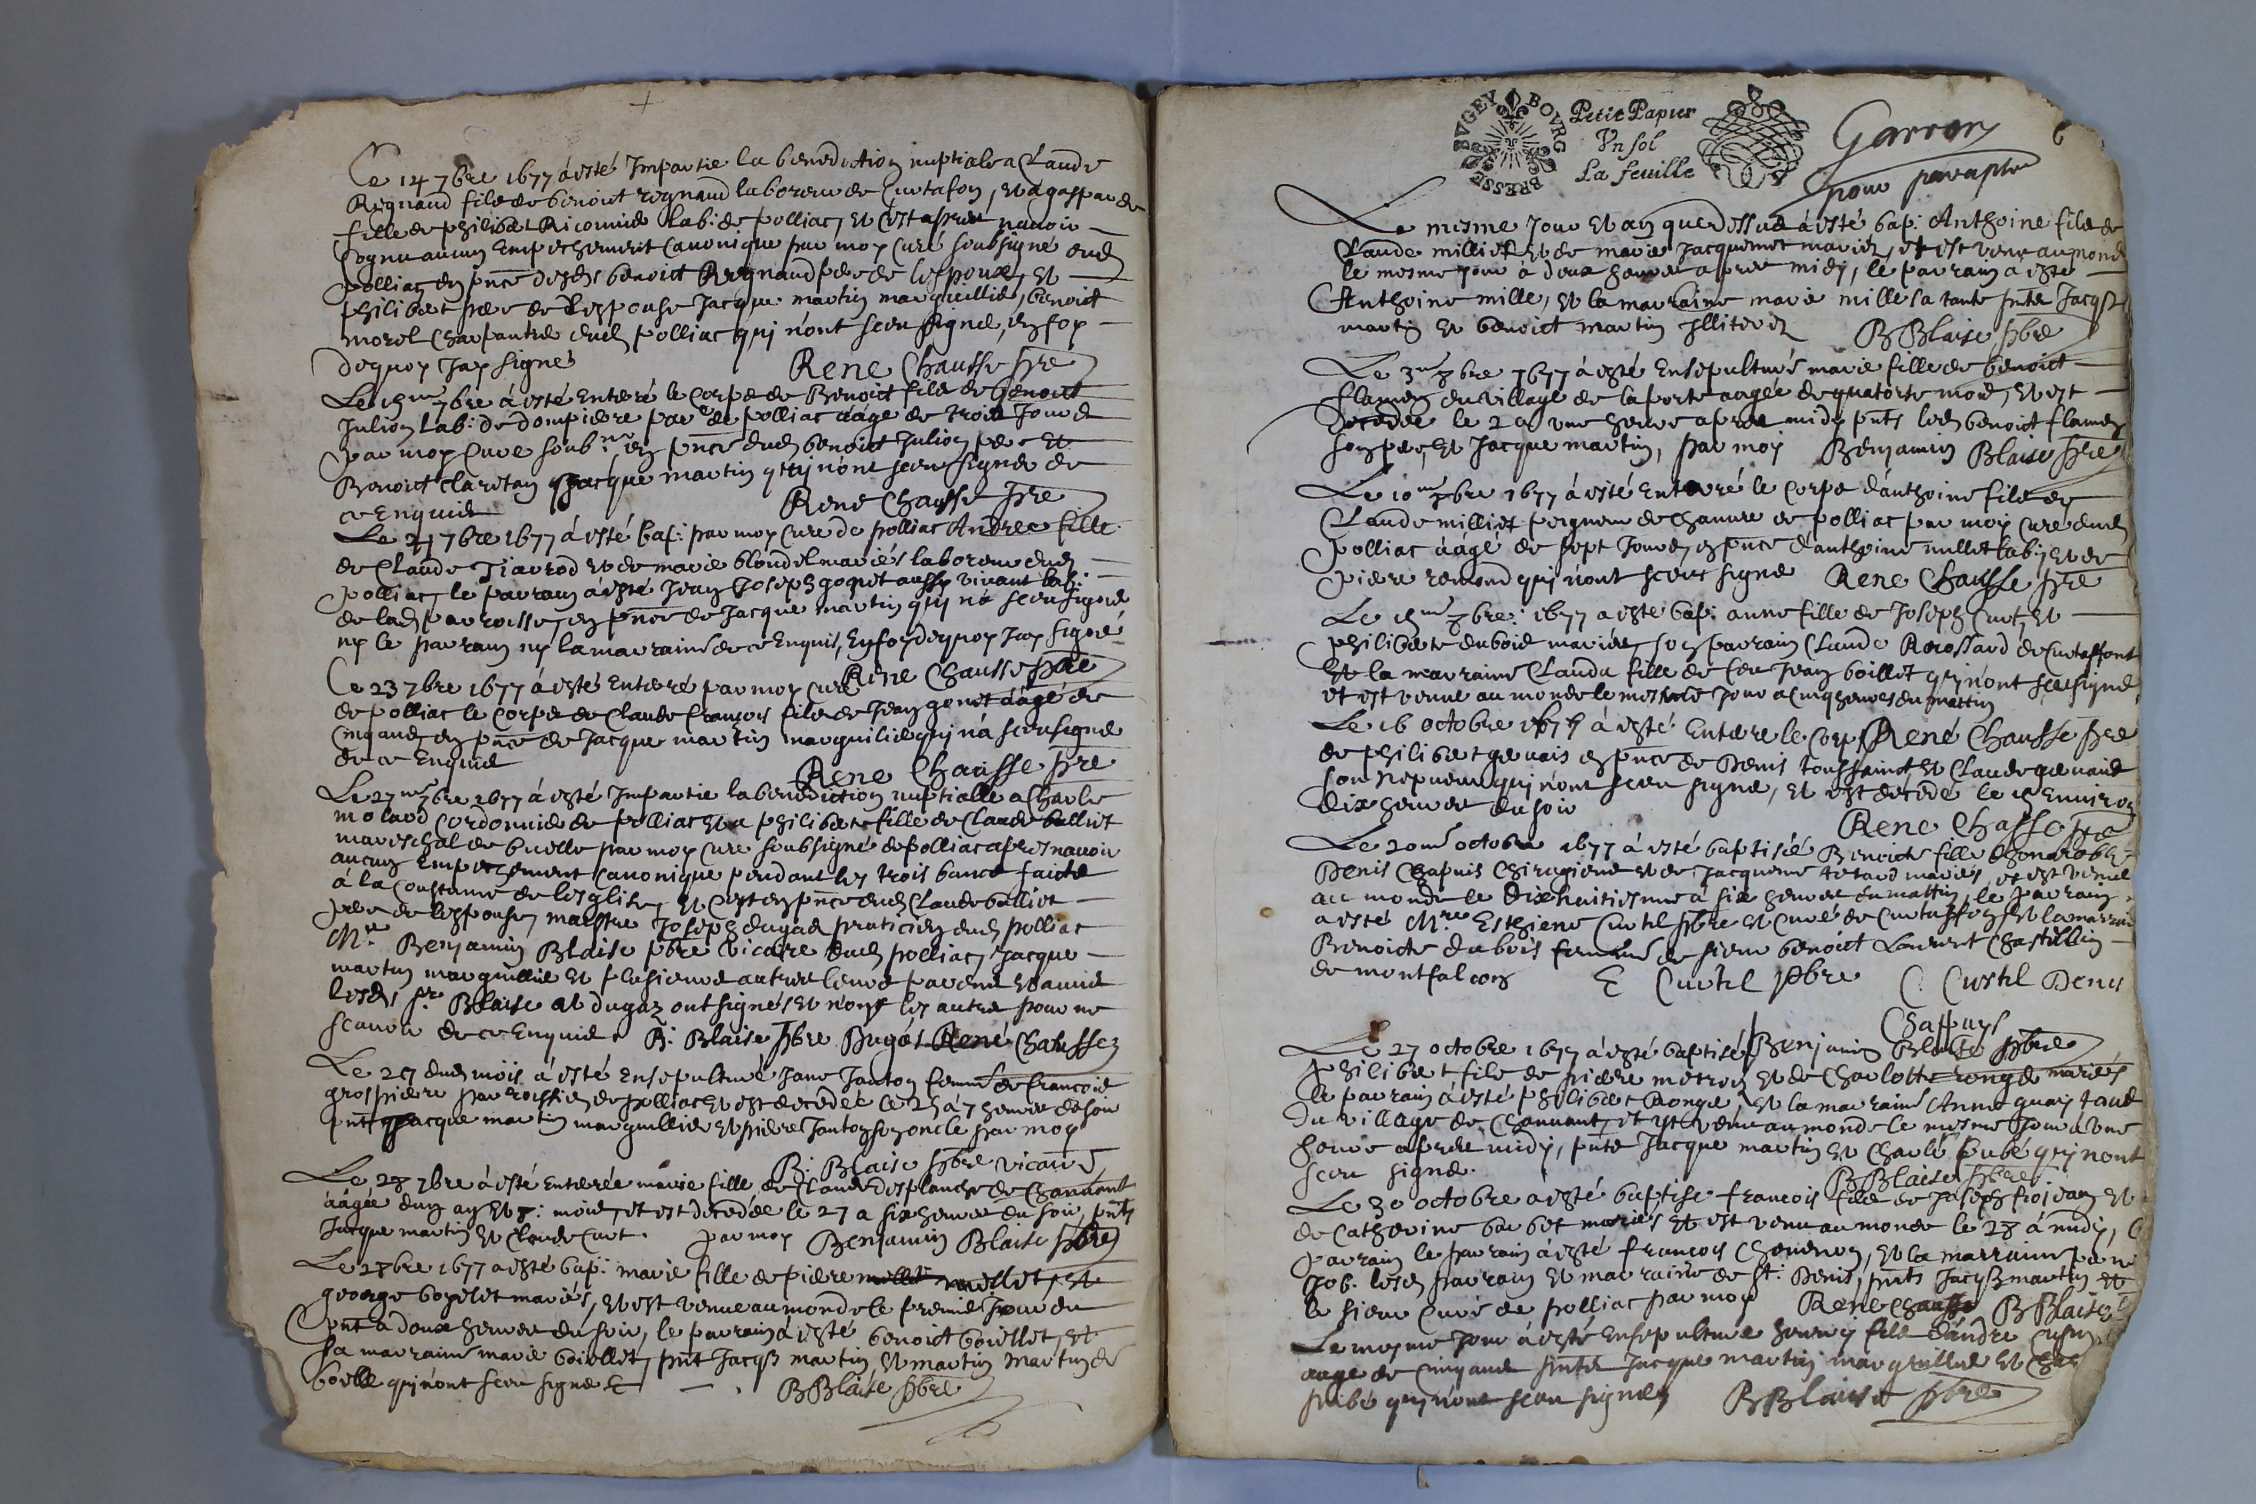 Ce 14 7bre 1677 à esté Impartie la benediction nuptiale a Claude
Regnaud filz de benoict regnaud laboreur de Curtafon, et a gasparde
fille de philibert Riconnier Lab: de polliac, et c'est apres navoir
cognu aucun Empeschement Canonique par moy Curé soubsigné dud
polliac en pnce desds benoict Regnaud pere de lespoux, et
philibert pere de Lespouse Jacque martin marguillier, benoict
morel Charpantier dud polliac qui n'ont sceu signé, en foy
dequoy Jay signé
Rene Chausse pbre
Le 7bre à esté Enteré le Corps de Benoict filz de benoit
Julion Lab: de dompiere par de polliac aagé de trois Jours
par moy Cure soub en pnce dud benoict Julion pere et
Benoict Jacque martin qui n'ont sceu signer de
ce Enquis
Rene Chausse pbre
Le 21 7bre 1677 à esté bap: par moy Cure de polliac Andree fille
de Claude et de marie blondel mariés laboreurs dud
polliac, le parrain à esté Jean Joseph goynet aussy vivant lab:
de lad parroisse, en pnce de Jacque martin qui na sceu signer
ny le parrain ny la marraine de ce Enquis, En foy dequoy Jay signé
Ce 23 7bre 1677 à esté Enteré par moy Curé Rene Chausse pbre
de polliac le Corps de Claude françois filz de Jean genet aagé de
Cinq ans en pnce de Jacque martin marguilier qui n'a sceu signer
de ce Enquis
Rene Chausse pbre
Le 27 7bre 1677 à esté Impartie la benediction nuptialle a Charle
molard Cordonnier de polliac et a philiberte fille de Claude balliet
mareschal de buelle par moy Cure soubsigné de polliac apres navoir
aucun Empeschement Canonique pendant les trois bancs faicts
à la Coustume de lesglise, et c'est en pnce dud Claude balliet
pere de lespouse, maistre Joseph dugad praticien dud polliac
Mre Benjamin Blaise pbre vicaire dud polliac, Jacque
martin marguillier et plusieurs autres leurs parens et amis
lesds sr Blaise et dugaz ont signés et n'ont les autres pour ne
scavoir de ce Enquis B: Blaise pbre Dugas René Chausse
Le 27 dud mois à esté Ensepulturé Jane Janton femme de françois
grospiere parroissien de polliac et est decedée le 25 à 7 heures du soir
pnt Jacque martin marguillier et piere Janton son oncle par moy
B: Blaise pbre vicaire
Le 28 7bre à esté Enterée marie fille de Claude desplanche de Channant
aagée dun an et 8: mois, et est decedée le 27 a six heures du soir, pnts
Jacque martin et Claude Curt. par moy Benjamin Blaise pbre
Le 2 8bre 1677 a esté bap: marie fille de piere millet, et
george boyelet mariés, et est venue au monde le premier Jour du
pnt a deux heures du soir, le parrain à esté benoict boiellet, et
sa marraine marie boiellet, pnt Jacqs martin et martin martin de
buelle qui n'ont sceu signer
BBlaise pbre
BVGEY BOVRG BRESSE
Petit Papier
Vn sol
La feuille
Garron
pour paraphe
6
Le mesme Jour et an que dessus à esté bap: Anthoine filz de
Claude milliet et de marie Jacquemet mariez, et est venu au monde
le mesme Jour à deux heures apres midy, le parrain a esté
Anthoine mille, et la marraine marie mille sa tante pnts Jacqs
martin et benoict martin Illiterez
BBlaise pbre
Le 3me 8bre 1677 à esté Ensepulturé marie fille de benoict
flamen du village de la porte aagée de quatorze mois, et est
decedée le 2 a une heure apres midy pnts led benoict flamen
son pere, et Jacque martin, par moy Benjamin Blaise pbre
Le 10me 8bre 1677 à esté Enterré le Corps d'anthoine filz de
Claude milliet peigneur de chanvre de polliac par moy Cure dud
polliac aagé de sept Jours, en pnce d'anthoine millet lab:, et de
piere remond qui n'ont sceus signer Rene Chausse pbre
Le 8bre: 1677 a esté bap: anne fille de Joseph Curt, et
philiberte dubois mariés, son parrain Claude Rossard de Curtaffont
et la marraine Clauda fille de feu Jean boillet qui n'ont sceu signer
et est venue au monde le mesme Jour a Cinq heures du mattin
Le 16 octobre 1677 à esté Enteré le Corps René Chausse pbre
de philibert genais en pnce de Denis toussainct, et Claude genais
son nepveu qui n'ont sceu signer, et est decedé le 15 Environ
dix heures du soir
Rene Chasse pbre
Le 20me octobre 1677 à esté baptisée Benoicte fille d'honorable
Denis Chapuis Chirugiens et de Jacqueme tetard mariés, et est venue
au monde le dixhuitiesme à six heures du mattin, le parrain
a esté Mre Esthiene Curtil pbre et curé de Curtaffon, et la marraine
Benoicte dubois femme de sieur benoict Laurent Chastillin
de montfalcon E Curtil pbre C. Curtil Denis
Chappuys
Benjamin Blaise pbre
Le 27 octobre 1677 à esté baptisé
philibert filz de piere metron et de Charlotte ronge mariés
le parrain à esté philibert Ronge, et la marraine Anne guay tous
du village de Channant, et est venu au monde le mesme Jour à une
heure apres midy, pnts Jacque martin et Charle pubé qui n'ont
sceu signer.
BBlaise pbre
Le 30 octobre à esté baptisé francois filz de Joseph froijean et
de Catherine barbet mariés et est venu au monde le 28 à midy,
parrain le parrain à esté françois Chevenon, et la marraine
Job. lesds parrain et marraine de st: Denis, pnts Jacqs martin et
le sieur Curé de polliac par moy Rene Chausse BBlaise
Le mesme Jour à esté Ensepulturé henry filz d'andre
aagé de Cinq ans pnts Jacque martin marguillier et
pubé qui n'ont sceu signer BBlaise pbre